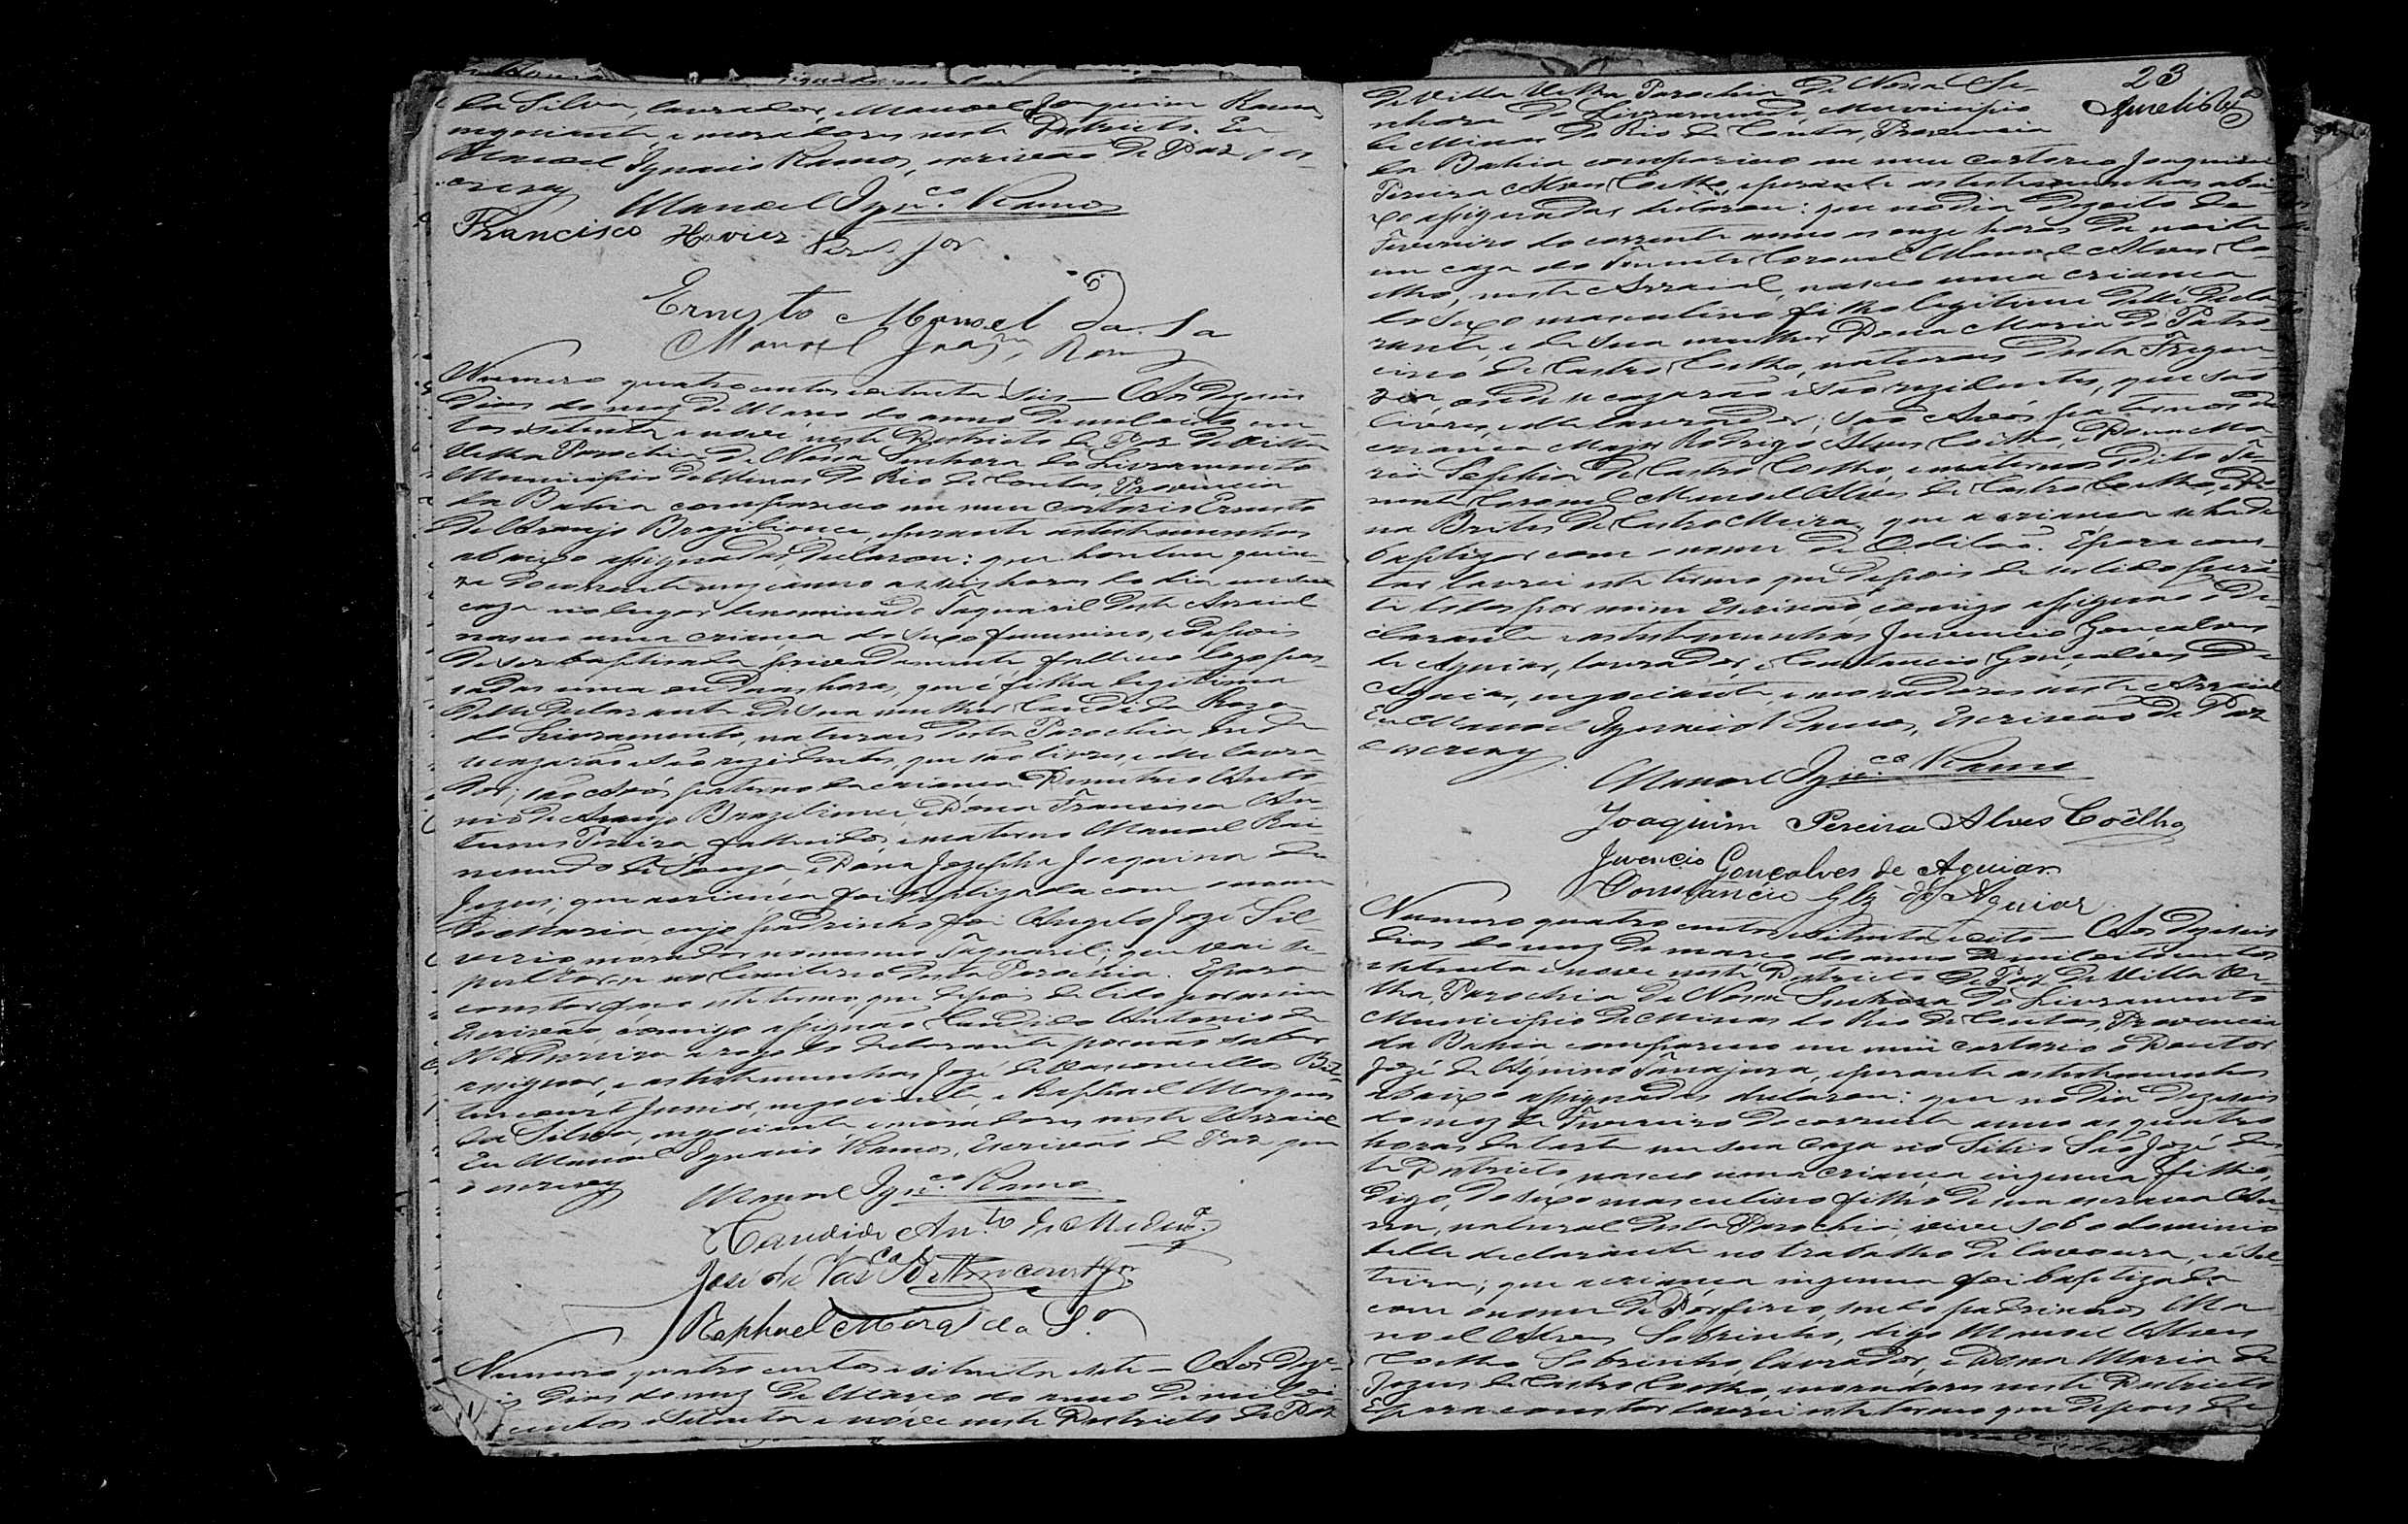 da Silva, lavrador, e Manoel Joaquim Ramos
negociante, e moradores neste Districto. Eu
Manoel Ignacio Ramos, escrivão de Paz o es-
crevy
Manoel Ignco. Ramos
Francisco Xavier Jor
Ernesto Manoel da Sa
Manoel Joaqm Ramos
Numero quatro centos e setenta e seis — Aos dezeseis
dias do mez de Março do anno de mil oito cen-
tos e setenta e nove, neste Districto de Paz de Villa
Velha Parochia de Nossa Senhora do Livramento
Municipio de Minas do Rio de Contas, Provincia
da Bahia compareceo em meu cartorio Ernesto
de Araujo Brazilience, e perante as testemunhas
abaixo assignadas, declarou: que hontem quin-
ze do corrente mez e anno as seis horas do dia em sua
caza no lugar denominado Taquaril deste Arraial
nasceo uma criança do sexo femenino, e depois
de ser baptizada privadamente falleceo logo pas-
sadas uma ou duas horas, que é filha legitima
delle declarante e de sua mulher Candida Roza
do Livramento, naturaes desta Parochia onde
se cazarão e são rezidentes, que são livres, e elle lavra
dor; são Avós paterno da criança Demetrio Anto
nio de Araujo Brazilience, e Dona Francisca An-
tunes Pereira fallecidos, e materno Manoel Rai-
mundo de Souza, e Dona Jozepha Joaquina de
Jezus; que a criança foi baptizada com o nome
de Maria, cujo padrinho foi Angelo Jozé Sil-
verio morador no mesmo Taquaril; que vai se
pultar-se no Cemiterio desta Parochia. E para
constar faço este termo, que depois de lido por mim
Escrivão, comigo assignão Candido Antonio de
Medeiros a rogo do declarante por não saber
assignar, e as testemunhas Jozé de Vasconcellos Bit-
tencourt Junior, negociante, e Raphael Marques
da Silva, negociante e moradores neste Arraial
Eu Manoel Ignacio Ramos, Escrivão de Paz que
o escrevy
Manoel Ignco. Ramos
Candido Anto. de Medeiros
José de Vasccos Bittencourt Jor
Raphael Marqs da Sa
Numero quatro centos e setenta e sete — Aos deze-
is dias do mez de Março do anno de mil oi
centos e setenta e nove neste Districto de Paz
23
de Villa Velha Parochia de Nossa Se-
nhora do Livramento, Municipio
de Minas do Rio de Contas, Provincia
da Bahia compareceo em meu cartorio Joaquim
Pereira Alves Coelho, e perante as testemunhas abai
xo assignadas declarou: que no dia dezoito de
Fevereiro do corrente anno as onze horas da noite
em caza do Tenente Coronel Manoel Alves Co-
elho, neste Arraial, nasceo uma criança
do sexo masculino filho legitimo delle decla
rante, e de sua mulher Dona Maria do Patro-
cinio de Castro Coelho, naturaes desta Fregue-
zia, onde se cazarão e são rezidentes, que são
livres, e elle lavrador; são Avós paternos da
criança Major Rodrigo Alves Coelho, e Dona Ma-
ria Sophia de Castro Coelho, e maternos o dito Te-
nente Coronel Manoel Alves de Castro Coelho, e Do
na Brites de Castro Meira, que a criança se hade
baptizar com o nome de Odilão. E para cons-
tar lavrei este termo que depois de ser lido peran-
te todos por mim Escrivão, comigo assignão o de-
clarante e as testemunhas Juvencio Gonçalves
de Aguiar, lavrador, e Constancio Gonçalves de
Aguiar, negociante, e moradores neste Arraial
Eu Manoel Ignacio Ramos, Escrivão de Paz
o escrevy.
Manoel Ignco. Ramos
Joaquim Pereira Alves Coêlho
Juvencio Gonçalves de Aguiar
Constancio Glz de Aguiar
Numero quatro centos e setenta e oito — Aos dezeseis
dias do mez de março do anno de mil oito centos
e setenta e nove neste Districto de Paz de Villa Ve-
lha, Parochia de Nossa Senhora do Livramento
Municipio de Minas do Rio de Contas, Provincia
da Bahia compareceo em meu cartorio o Doutor
Jozé de Aquino Tanajura, e perante as testemunhas
abaixo assignadas declarou: que no dia dezeseis
do mez de Fevereiro do corrente anno as quatro
horas da tarde em sua caza no Sitio São Jozé des-
te Districto, nasceo uma criança ingenua filho,
digo, do sexo masculino filho de sua escrava Au-
rea, natural desta Parochia, vive sob o dominio
delle declarante no trabalho de lavoura, e é sol-
teira; que a criança ingenua foi baptizada
com o nome de Porfirio, sendo padrinhos Ma
noel Alves Sobrinho, digo Manoel Alves
Coelho Sobrinho, lavrador, e Dona Maria de
Jezus de Castro Coelho, moradores neste Districto
E para constar lavrei este termo que depois de